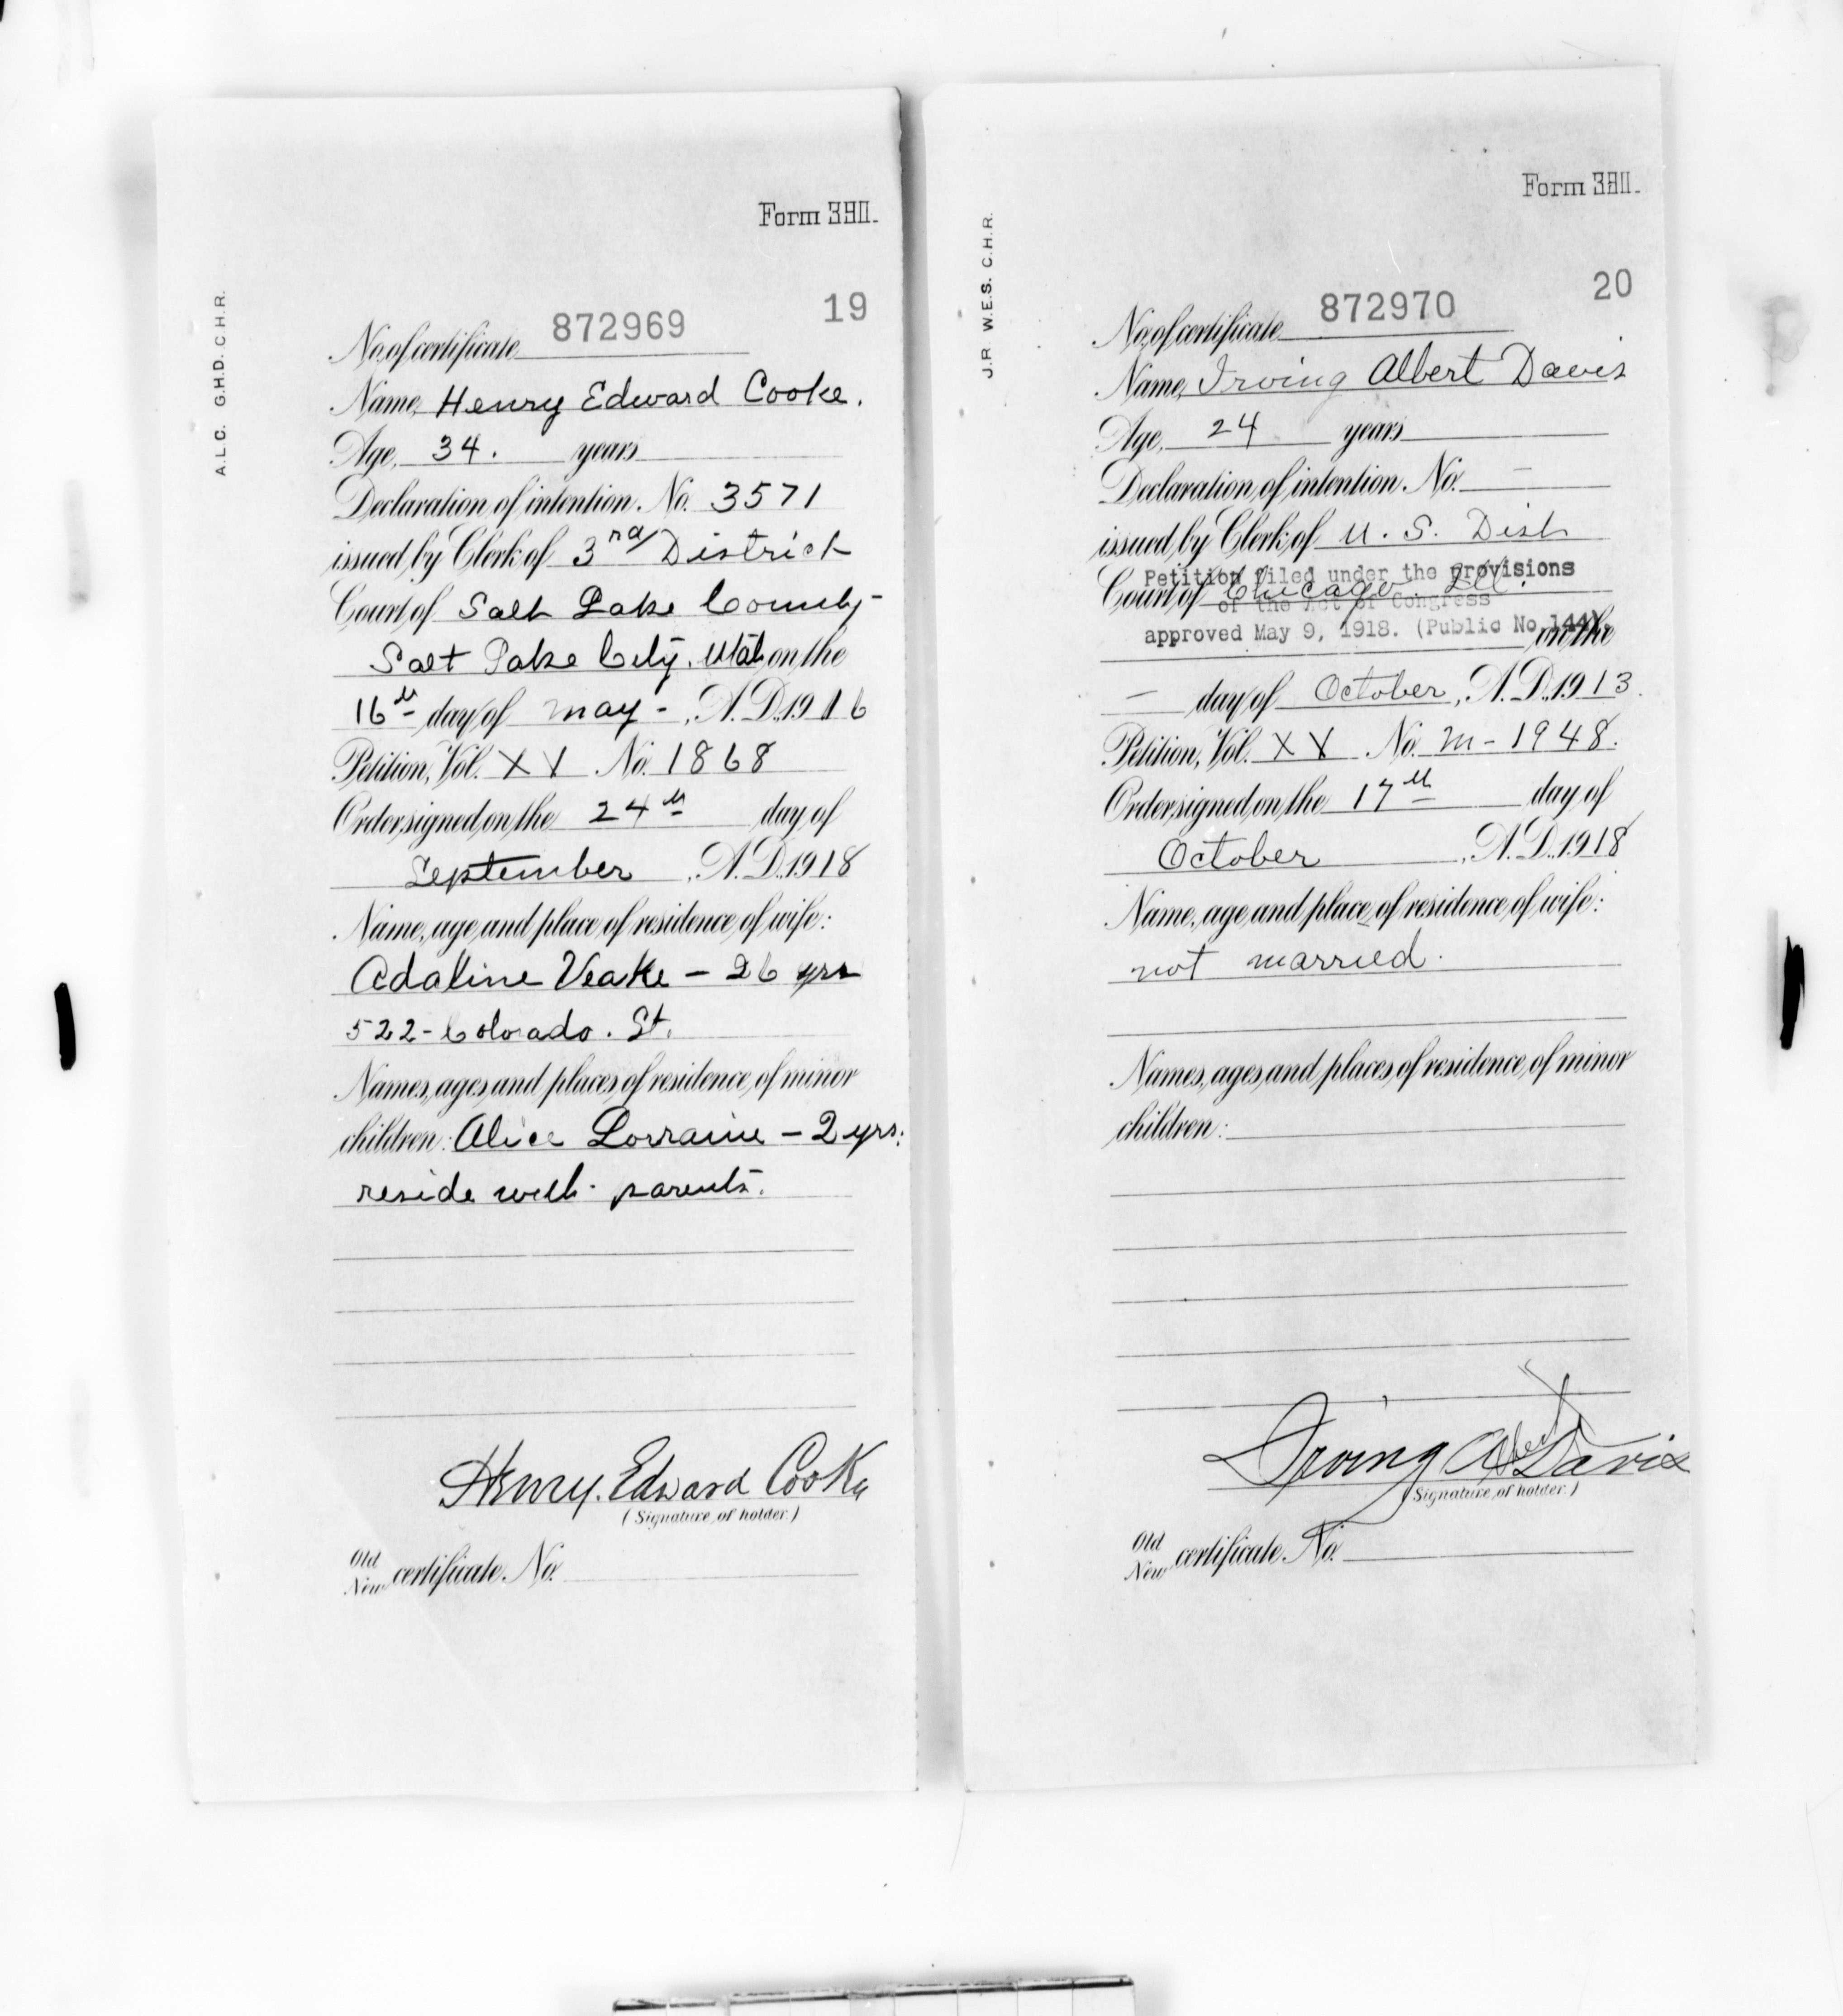 Form 380.
19
A.L.C. G.H.D. C.H.R.
No. of certificate 872969
Name, Henry Edward Cooke.
Age, 34. years
Declaration of intention. No. 3571
issued by Clerk of 3rd District
Court of Salt Lake County-
Salt Lake City. Utah on the
16th day of May -, A.D. 1916
Petition, Vol. XV No. 1868
Order signed on the 24th day of
September, A.D. 1918
Name, age and place of residence of wife:
Adaline Veake - 26 yrs
522- Colorado. St.
Names, ages and places of residence of minor
children: Alice Lorraine - 2 yrs:
reside with parents.
Henry. Edward Cooke
(Signature of holder.)
Old
New certificate No.
Form 380.
20
J.R W.E.S. C.H.R.
No. of certificate 872970
Name, Irving Albert Davis
Age, 24 years
Declaration of intention. No. -
issued by Clerk of U. S. Dist
Petition filed under the provisions
Court of Chicago Ill.
of the Act of Congress
approved May 9, 1918. (Public No. 144). on the
- day of October, A.D. 1913.
Petition, Vol. XV No. M - 1948.
Order signed on the 17th day of
October, A.D. 1918
Name, age and place of residence of wife:
not married.
Names, ages and places of residence of minor
children:
Irving Albert Davis
(Signature of holder.)
Old
New certificate No.